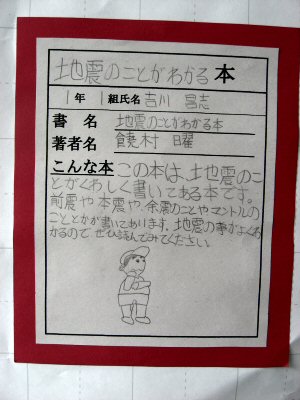 地震のことがわかる本
年 組氏名 吉川 宮志
書名 地震のことがわかる本
著者名 饒村 曜
こんな本 この本は、土地震のこ
とがくわしく書いてある本です。
前震や本震や、余震のことやマントルの
こととかが書いてあります。地震の事がよくわ
かるのでぜひ読んでみてください。